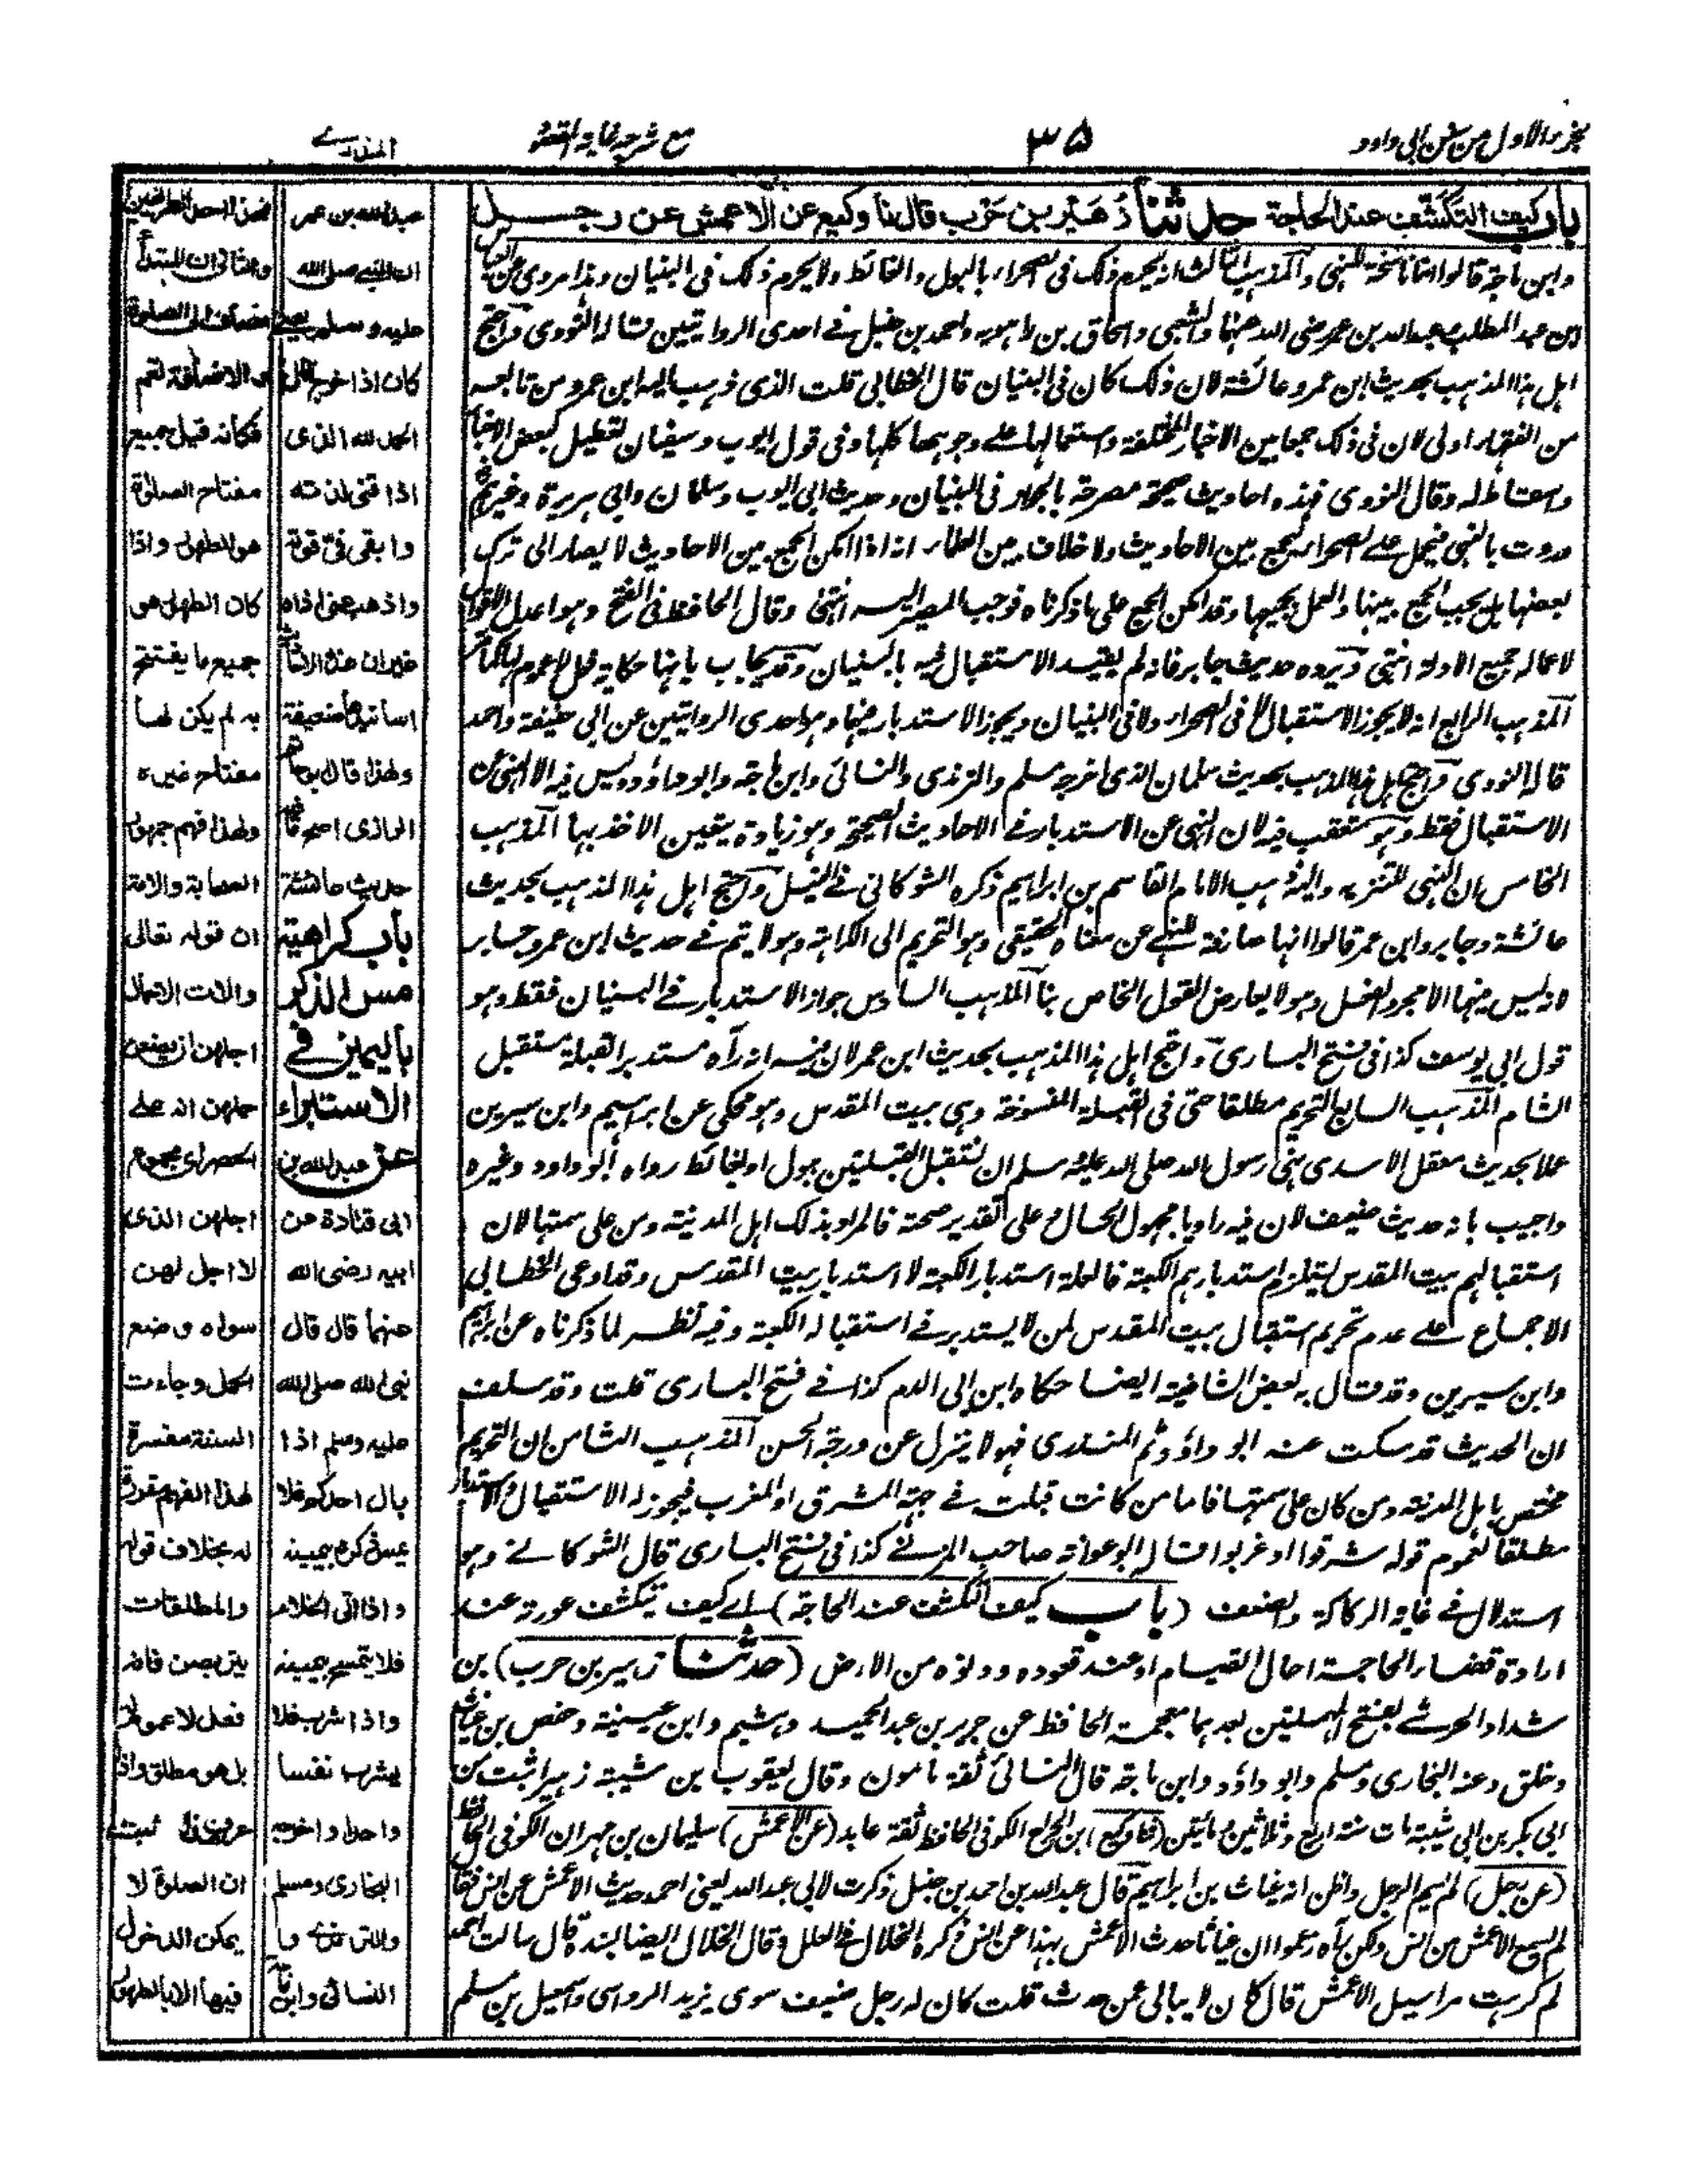 الجزء الاول من سنن ابي داود
٣٥
مع شرحه غاية المقصود
المنذري
باب كيف التكشف عند الحاجة حدثنا زهير بن حرب قال نا وكيع عن الاعمش عن رجل
وابن ماجة قالوا انها ناسخة للنهي والمذهب الثالث انه يحرم ذلك في الصحراء بالبول والغائط ولا يحرم ذلك في البنيان وهذا مروي عن العباس
ابن عبد المطلب وعبد الله بن عمر رضي الله عنهما والشعبي واسحاق بن راهويه واحمد بن حنبل في احدى الروايتين قاله النووي واحتج
اهل هذا المذهب بحديث ابن عمر وعائشة لان ذلك كان في البنيان قال الخطابي قلت الذي ذهب اليه ابن عمر ومن تابعه
من الفقهاء اولى لان في ذلك جمعا بين الاخبار المختلفة واستعمالها على وجوهها كلها وفي قول ابي ايوب وسفيان تعطيل لبعض الاخبار
واسقاط له وقال النووي فهذه احاديث صحيحة مصرحة بالجواز في البنيان وحديث ابي ايوب وسلمان وابي هريرة وغيرهم
وردت بالنهي فيحمل على الصحراء ليجمع بين الاحاديث ولا خلاف بين العلماء انه اذا امكن الجمع بين الاحاديث لا يصار الى ترك
بعضها بل يجب الجمع بينها والعمل بجميعها وقد امكن الجمع على ما ذكرناه فوجب المصير اليه انتهى وقال الحافظ في الفتح وهو اعدل الاقوال
لاعماله جميع الادلة انتهى ويرده حديث جابر فانه لم يقيد الاستقبال فيه بالبنيان وقد يجاب بانها حكاية فعل لا عموم لها كما مر
المذهب الرابع انه لا يجوز الاستقبال لا في الصحراء ولا في البنيان ويجوز الاستدبار فيهما وهو احدى الروايتين عن ابي حنيفة واحمد
قاله النووي واحتج اهل هذا المذهب بحديث سلمان الذي اخرجه مسلم والترمذي والنسائي وابن ماجه وابو داؤد وليس فيه الا النهي عن
الاستقبال فقط وهو متعقب فيه لان النهي عن الاستدبار في الاحاديث الصحيحة وهو زيادة يتعين الاخذ بها المذهب
الخامس ان النهي للتنزيه واليه ذهب الامام القاسم بن ابراهيم ذكره الشوكاني في النيل واحتج اهل هذا المذهب بحديث
عائشة وجابر وابن عمر قالوا انها صارفة للنهي عن معناه الحقيقي وهو التحريم الى الكراهة وهو لا يتم في حديث ابن عمر وجابر
لانه ليس فيهما الا مجرد الفعل وهو لا يعارض القول الخاص بنا المذهب السادس جواز الاستدبار في البنيان فقط وهو
قول ابي يوسف كذا في فتح الباري واحتج اهل هذا المذهب بحديث ابن عمر لان فيه انه رآه مستدبر القبلة مستقبل
الشام المذهب السابع التحريم مطلقا حتى في القبلة المنسوخة وهي بيت المقدس وهو محكي عن ابراهيم وابن سيرين
عملا بحديث معقل الاسدي نهى رسول الله صلى الله عليه وسلم ان نستقبل القبلتين ببول او بغائط رواه ابو داود وغيره
واجيب بانه حديث ضعيف لان فيه راويا مجهول الحال وعلى تقدير صحته فالمراد بذلك اهل المدينة ومن على سمتها لان
استقبالهم بيت المقدس يستلزم استدبارهم الكعبة فالعلة استدبار الكعبة لا استدبار بيت المقدس وقد ادعى الخطابي
الاجماع على عدم تحريم استقبال بيت المقدس لمن لا يستدبر في استقباله الكعبة وفيه نظر لما ذكرناه عن ابراهيم
وابن سيرين وقد قال به بعض الشافعية ايضا حكاه ابن ابي الدم كذا في فتح الباري قلت وقد سلف
ان الحديث قد سكت عنه ابو داؤد ثم المنذري فهو لا ينزل عن درجة الحسن المذهب الثامن ان التحريم
مختص باهل المدينة ومن كان على سمتها فاما من كانت قبلته في جهة المشرق او المغرب فيجوز له الاستقبال والاستدبار
مطلقا لعموم قوله شرقوا او غربوا قاله ابو عوانة صاحب المزني كذا في فتح الباري قال الشوكاني وهو
استدلال في غاية الركاكة والضعف (باب كيف التكشف عند الحاجة) اي كيف يتكشف عورته عند
ارادة قضاء الحاجة احال القيام او عند قعوده ودنوه من الارض (حدثنا زهير بن حرب) بن
شداد الحرشي بفتح المهملتين بعدهما معجمة الحافظ عن جرير بن عبد الحميد وهشيم وابن عيينة وحفص بن غياث
وخلق وعنه البخاري ومسلم وابو داؤد وابن ماجه قال النسائي ثقة مامون وقال يعقوب بن شيبة زهير اثبت من
ابي بكر بن ابي شيبة مات سنة اربع وثلاثين ومائتين (نا وكيع) ابن الجراح الكوفي الحافظ ثقة عابد (عن الاعمش) سليمان بن مهران الكوفي الحافظ
(عن رجل) لم يسم الرجل واظن انه غياث بن ابراهيم قال عبد الله بن احمد بن حنبل ذكرت لابي عبد الله يعني احمد حديث الاعمش عن انس فقال
لم يسمع الاعمش من انس ولكن رآه زعموا ان غياثا حدث الاعمش بهذا عن انس ذكره الخلال في العلل وقال الخلال ايضا بسنده قال سالت احمد
لم كرهت مراسيل الاعمش قال كان لا يبالي عمن حدث قلت كان له رجل ضعيف سوى يزيد الرواسي واسمعيل بن مسلم
عبد الله بن عمر
ان النبي صلى الله
عليه وسلم يعني
كان اذا خرج قال
الحمد لله الذي
اذاقني لذته
وابقى في قوته
واذهب عني اذاه
غير ان هذه الاحاديث
اسانيدها ضعيفة
ولهذا قال ابو حاتم
الرازي اصح ما فيه
حديث عائشة
باب كراهية
مس الذكر
باليمين في
الاستبراء
عن عبد الله بن
ابي قتادة عن
ابيه رضي الله
عنهما قال قال
نبي الله صلى الله
عليه وسلم اذا
بال احدكم فلا
يمس ذكره بيمينه
واذا اتى الخلاء
فلا يتمسح بيمينه
واذا شرب فلا
يشرب نفسا
واحدا واخرجه
البخاري ومسلم
والترمذي و
النسائي وابن ماجة
والثاني ان المبتدأ
مضاف الى الصلوة
والاضافة تعم
فكانه قيل جميع
مفتاح الصلوة
هو الطهور واذا
كان الطهور هو
جميع ما يفتتح
به لم يكن لها
مفتاح غيره
ولهذا فهم جمهور
الصحابة والامة
ان قوله تعالى
واولات الاحمال
اجلهن ان يضعن
حملهن انه على
الحصر اي مجموع
اجلهن الذي
لا اجل لهن
سواه وضع
الحمل وجاءت
السنة مفسرة
لهذا الفهم مقررة
له بخلاف قوله
والمطلقات
يتربصن فانه
فعل لا عموم له
بل هو مطلق واذا
عرف هذا ثبت
ان الصلوة لا
يمكن الدخول
فيها الا بالطهور